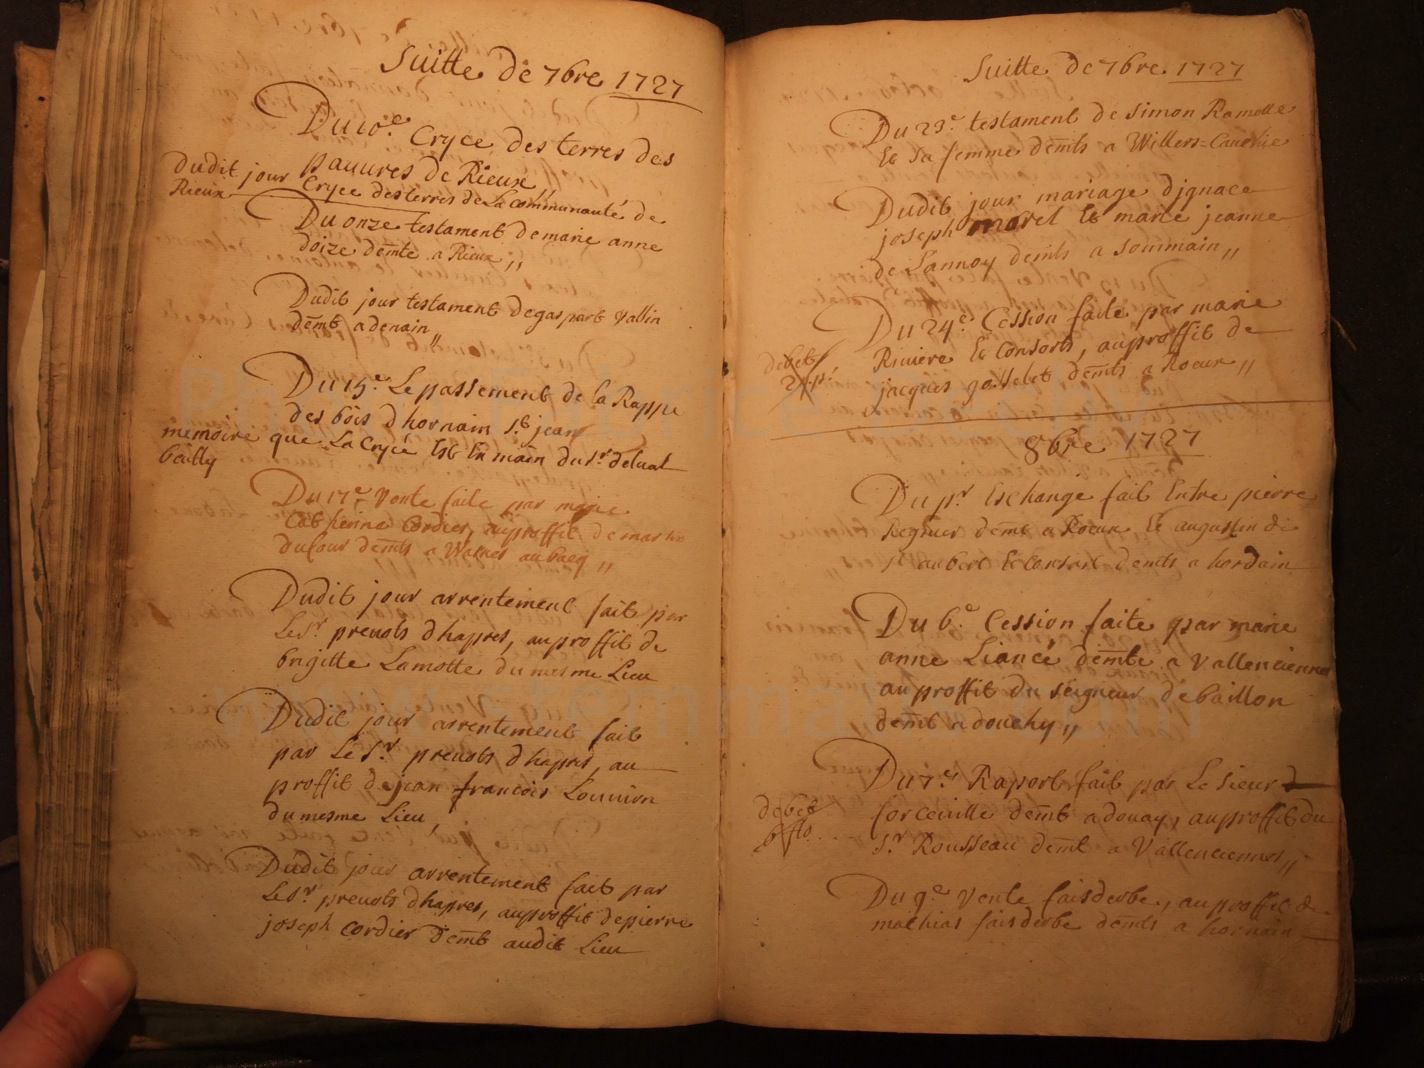 Suitte de 7bre 1727
Du 10.e Cryee des terres des
pauures de Rieux
dudit jour Cryee des terres de La Communauté de
Rieux
Du onze testament de marie anne
doize demte a Rieux
Dudit jour testament de gaspart Vallin
demt a denain
Du 15.e Le passement de la Rappe
des bois d hornain St jean
memoire que La Cryée Est En main du Sr delual
beully
Du 17e Vente faite par marie
Catherine Cordier, auproffit de martin
dufour demts a Wasnes au bacq
Dudit jour arrentement fait par
Le Sr preuots d haspres, auproffit de
brigitte Lamotte du mesme Lieu
Dudit jour arrentement fait
par Le Sr preuots d haspres, au
proffit de jean francois Louuion
du mesme Lieu
Dudit jour arrentement fait par
Le Sr preuots d haspres, auproffit de pierre
joseph Cordier demt audit Lieu
Suitte de 7bre 1727
Du 23e testament de Simon Ramette
Et Sa femme demts a Willers-Cauchie
Dudit jour mariage d jgnace
joseph morel Et marie jeanne
de Lannoy demts a Sommain
Du 24e Cession faite par marie
Riuiere Et Consorts, auproffit de
jacques gosselet demts a Roeux
debet
8bre 1727
Du pr Eschange fait Entre pierre
Regnier demt a Roeux Et augustin de
St aubert Et Consort demts a hordain
Du 6.e Cession faite par marie
anne Liancé demte a Vallenciennes
auproffit du seigneur de baillon
demt a douchy
Du 7.e Raport fait par Le Sieur d
forceuille demt a douay, auproffit du
Sr Rousseau demt a Vallenciennes
debet
6 flo
Du 9e Vente faisderbe, auproffit de
mathias faisderbe demts a hornain